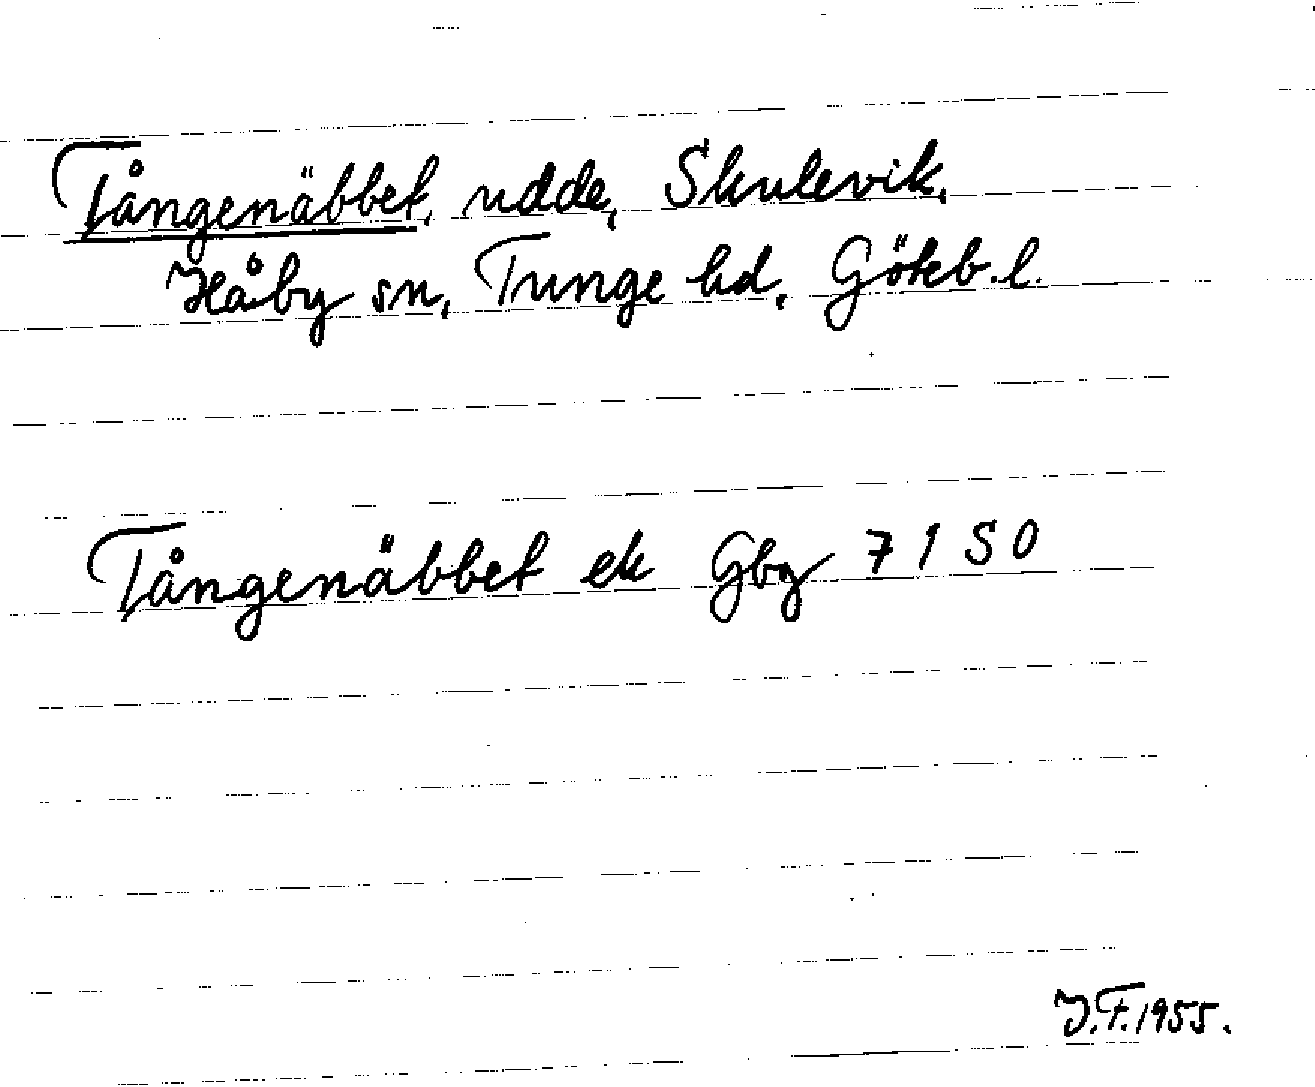 Tångenäbbet, udde, Skulevik,
Håby sn, Tunge hd, Göteb. l.
Tångenäbbet ek Gbg 7 1 S O
J.F. 1955.